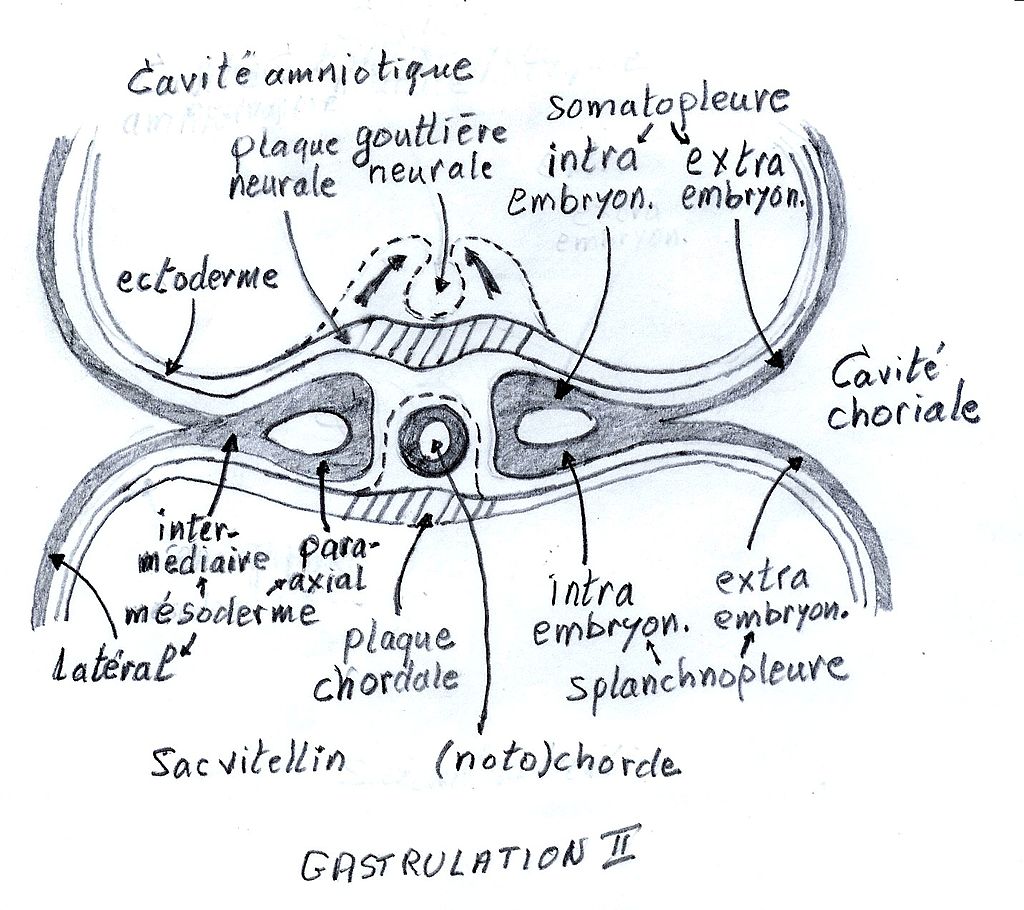 Cavité amniotique
plaque
neurale
gouttière
neurale
somatopleure
intra
embryon.
extra
embryon.
ectoderme
Cavité
choriale
inter-
médiaire
para-
axial
mésoderme
latéral
plaque
chordale
intra
embryon.
extra
embryon.
splanchnopleure
Sac vitellin
(noto)chorde
GASTRULATION II